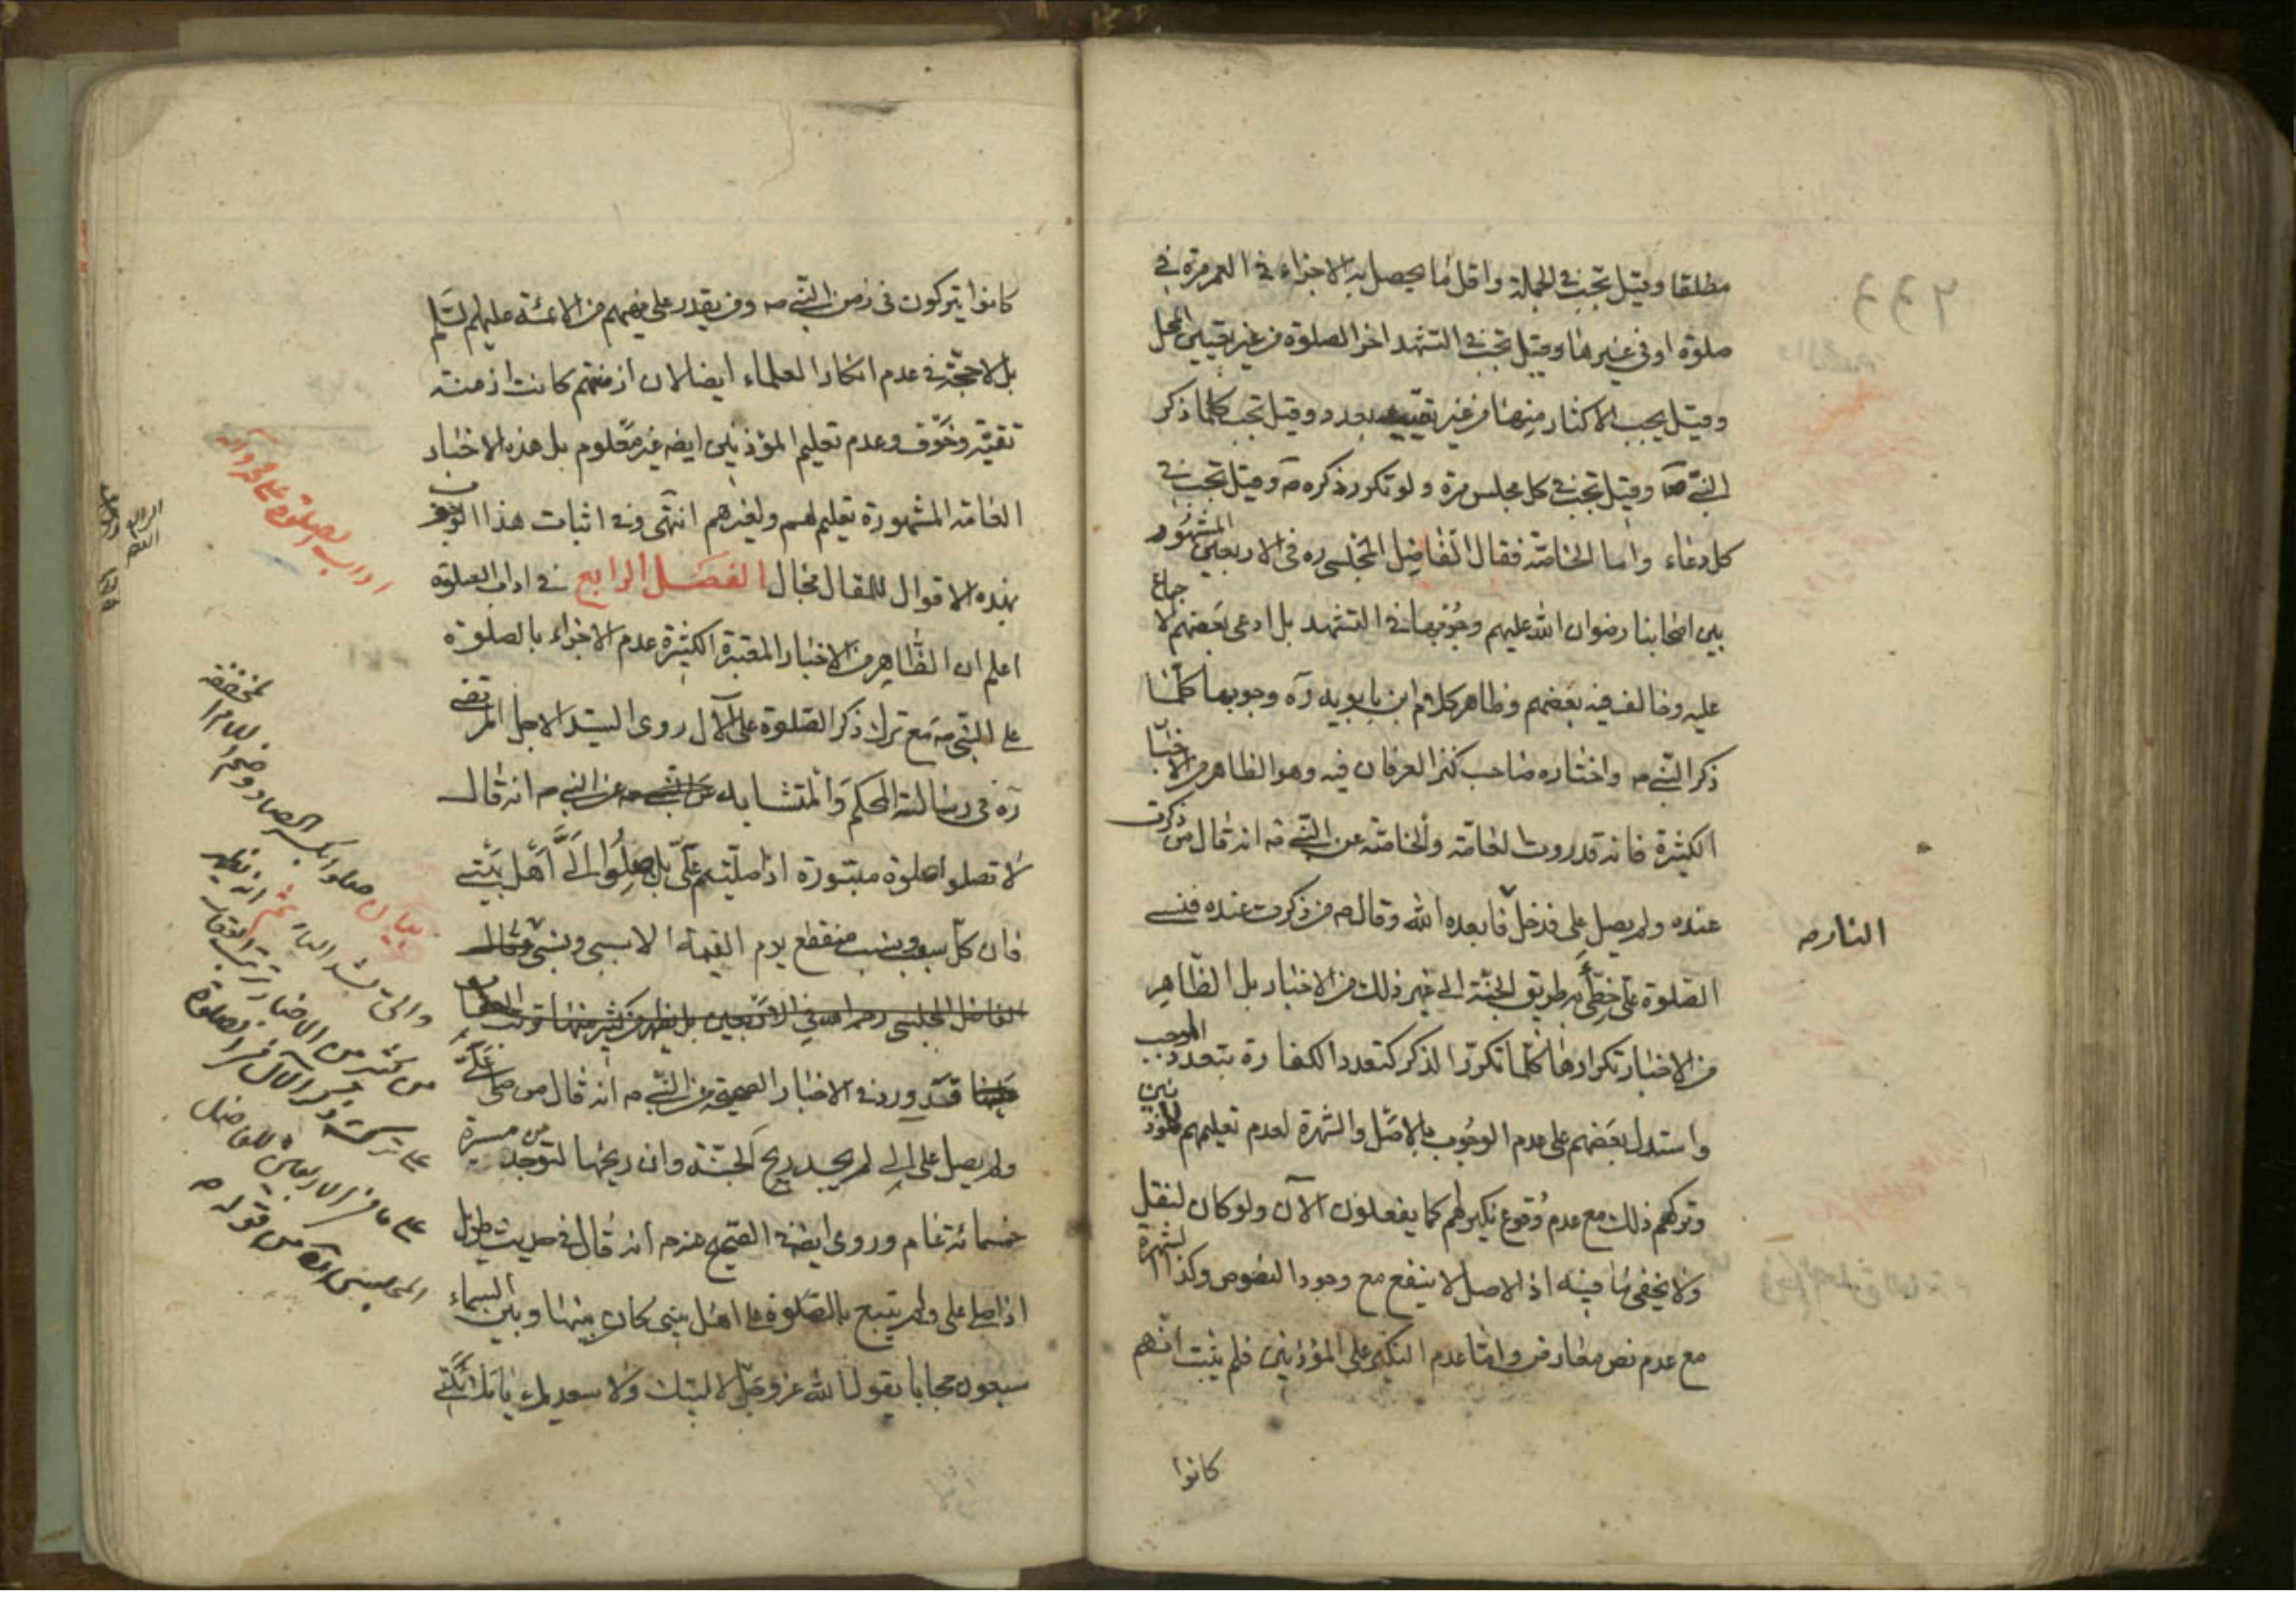 مطلقا وقيل تجب في الجملة واقل ما يحصل به الاجزاء في العمر مرة في
صلوة او في غيرها وقيل تجب في التشهد اخر الصلوة من غير تعيين المحل
وقيل يجب الاكثار منها من غير تقييد بعدد وقيل تجب كلما ذكر
النبي ص وقيل تجب في كل مجلس مرة ولو تكرر ذكره ص وقيل تجب في
كل دعاء واما الخاصة فقال الفاضل المجلسي ره في الاربعين المشهور
بين اصحابنا رضوان الله عليهم وجوبها في التشهد بل ادعى بعضهم الاجماع
عليه وخالف فيه بعضهم وظاهر كلام ابن بابويه ره وجوبها كلما
ذكر النبي ص واختاره صاحب كنز العرفان فيه وهو الظاهر من الاخبار
الكثيرة فانه قد روت العامة والخاصة عن النبي ص انه قال من ذكرت
عنده ولم يصل علي فدخل فابعده الله وقال ص من ذكرت عنده فنسي
النار ص
الصلوة علي خطئ به طريق الجنة الى غير ذلك من الاخبار بل الظاهر
من الاخبار تكرارها كلما تكرر الذكر كتعدد الكفارة بتعدد الموجب
واستدل بعضهم على عدم الوجوب بالاصل والشهرة لعدم تعليمهم للمؤذنين
وتركهم ذلك مع عدم وقوع نكير لهم كما يفعلون الآن ولو كان لنقل
ولا يخفى ما فيه اذ الاصل لا ينفع مع وجود النصوص وكذا الشهرة
مع عدم نص معارض واما عدم النكير على المؤذنين فلم يثبت انهم
كانوا
كانوا يتركون في زمن النبي ص ومن يقدر على منعهم من الائمة عليهم السلم
بل لا حجة في عدم انكار العلماء ايضا لان ازمنتهم كانت ازمنة
تقية وخوف وعدم تعليم المؤذنين ايضه غير معلوم بل هذه الاخبار
العامة المشهورة تعليم لهم ولغيرهم انتهى وفي اثبات هذا
بهذه الاقوال للمقال مجال الفصل الرابع في اداب الصلوة
اداب الصلوة على محمد وآله
اعلم ان الظاهر من الاخبار المعتبرة الكثيرة عدم الاجزاء بالصلوة
على النبي ص مع ترك ذكر الصلوة على الآل روى السيد الاجل المرتضى
ره في رسالة المحكم والمتشابه عن النبي ص عن النبي ص انه قال
لا تصلوا صلوة مبتورة اذا صليتم علي بل صلوا الي اهل بيتي
فان كل سبب ونسب منقطع يوم القيمة الا سببي ونسبي وقال
الفاضل المجلسي رحمه الله في الاربعين بل يظهر من كثير منها
قد ورد في الاخبار الصحيحة عن النبي ص انه قال من صلى علي
ولم يصل على الي لم يجد ريح الجنة وان ريحها لتوجد من مسيرة
خمسمائة عام وروى ايضه في الصحيح عنه ص انه قال في حديث طويل
اذا صلى علي ولم يتبع بالصلوة على اهل بيتي كان بينها وبين السماء
سبعون حجابا يقول الله عز وجل لا لبيك ولا سعديك يا ملائكتي
بيان صلوا بكسر الصاد وضم اللام امرا
والي بشد الياء
من كثير من الاخبار
على ما في الاربعين للفاضل
المجلسي ره من قوله ص